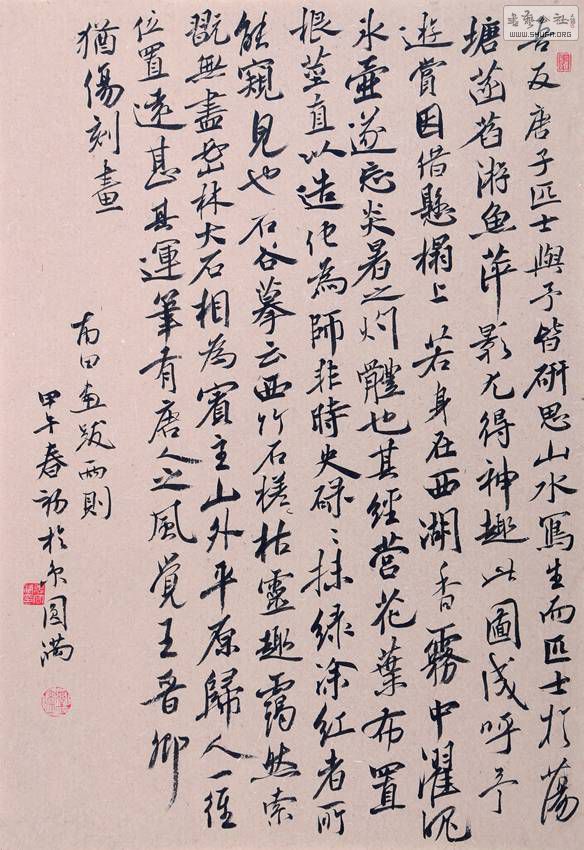 吾友唐子匹士與予皆研思山水寫生而匹士於蕩
塘菡萏游魚萍影尤得神趣此圖成呼予
遊賞因借懸榻上若身在西湖香霧中濯魄
氷壺遂忘炎暑之灼體也其經營花葉布置
根莖直以造化為師非時史碌〻抹綠涂紅者所
能窺見也石谷摹云西竹石槎枯靈趣靄然索
翫無盡密林大石相為賓主山外平原歸人一徑
位置遠甚其運筆有唐人之風覺王晉卿
猶傷刻畫
南田画跋兩則
甲午春初於京圓滿
WWW.SHUFA.ORG